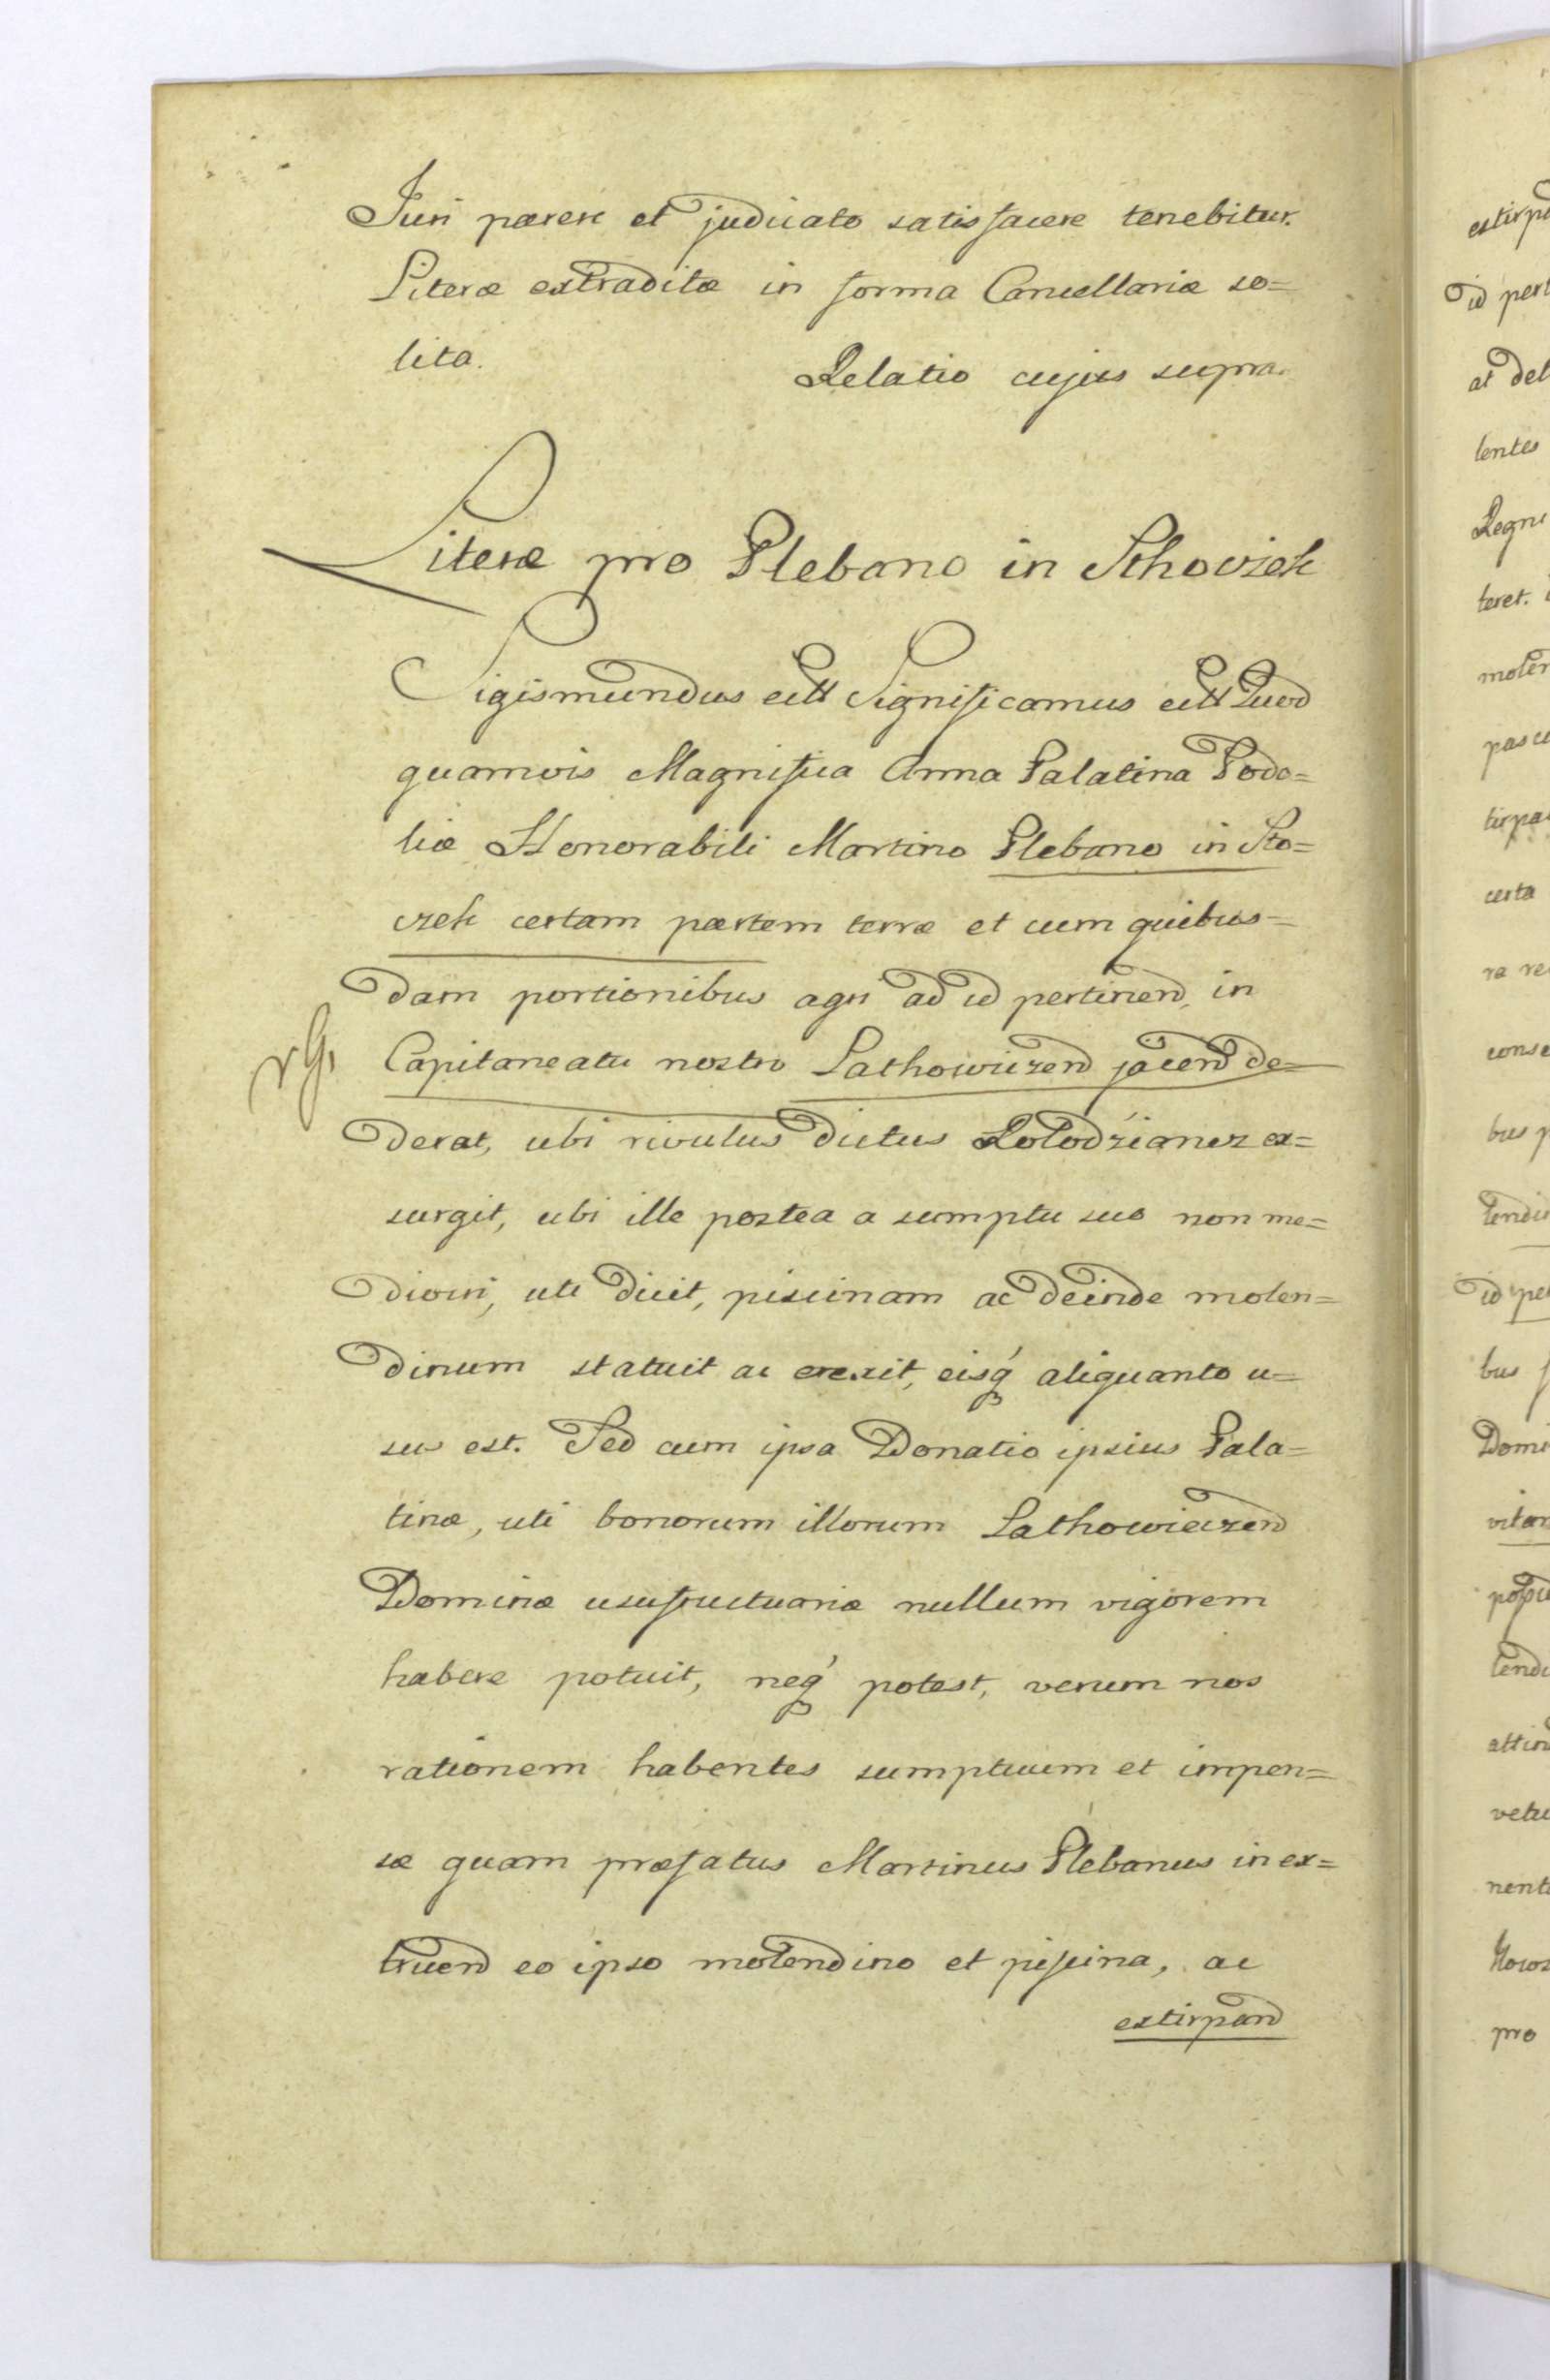 Juri parere et judicato satisfacere tenebitur.
Literæ extraditæ in forma Cancellariæ so=
lita.
Relatio cujus supra.
Literæ pro Plebano in Sthoczek
Sigismundus ett Significamus ett Quod
quamvis Magnifica Anna Palatina Podo=
liæ Honorabili Martino Plebano in Sto=
czek certam partem terræ et cum quibus=
dam portionibus agri ad id pertinend, in
Capitaneatu nostro Lathowiczend jacend de=
derat, ubi rivulus dictus Kolodzianez ex=
surgit, ubi ille postea a sumptu suo non me=
diocri, uti dicit, piscinam ac deinde molen=
dinum statuit ac erexit, eisq́ aliquanto u=
sus est. Sed cum ipsa Donatio ipsius Pala=
tinæ, uti bonorum illorum Lathowiczend
Dominæ usufructuariæ nullum vigorem
habere potuit, neq́ potest, verum nos
rationem habentes sumptuum et impen=
sæ quam præfatus Martinus Plebanus in ex=
truend eo ipso molendino et piscina, ac
extirpand
estirpa
id pert
at del
lentes
Regni
teret.
molen
pascu
tirpa
certa
ra re
conse
bus p
tendi
id pe
bus
Domi
vitan
tendi
attin
vetu
nent
pro